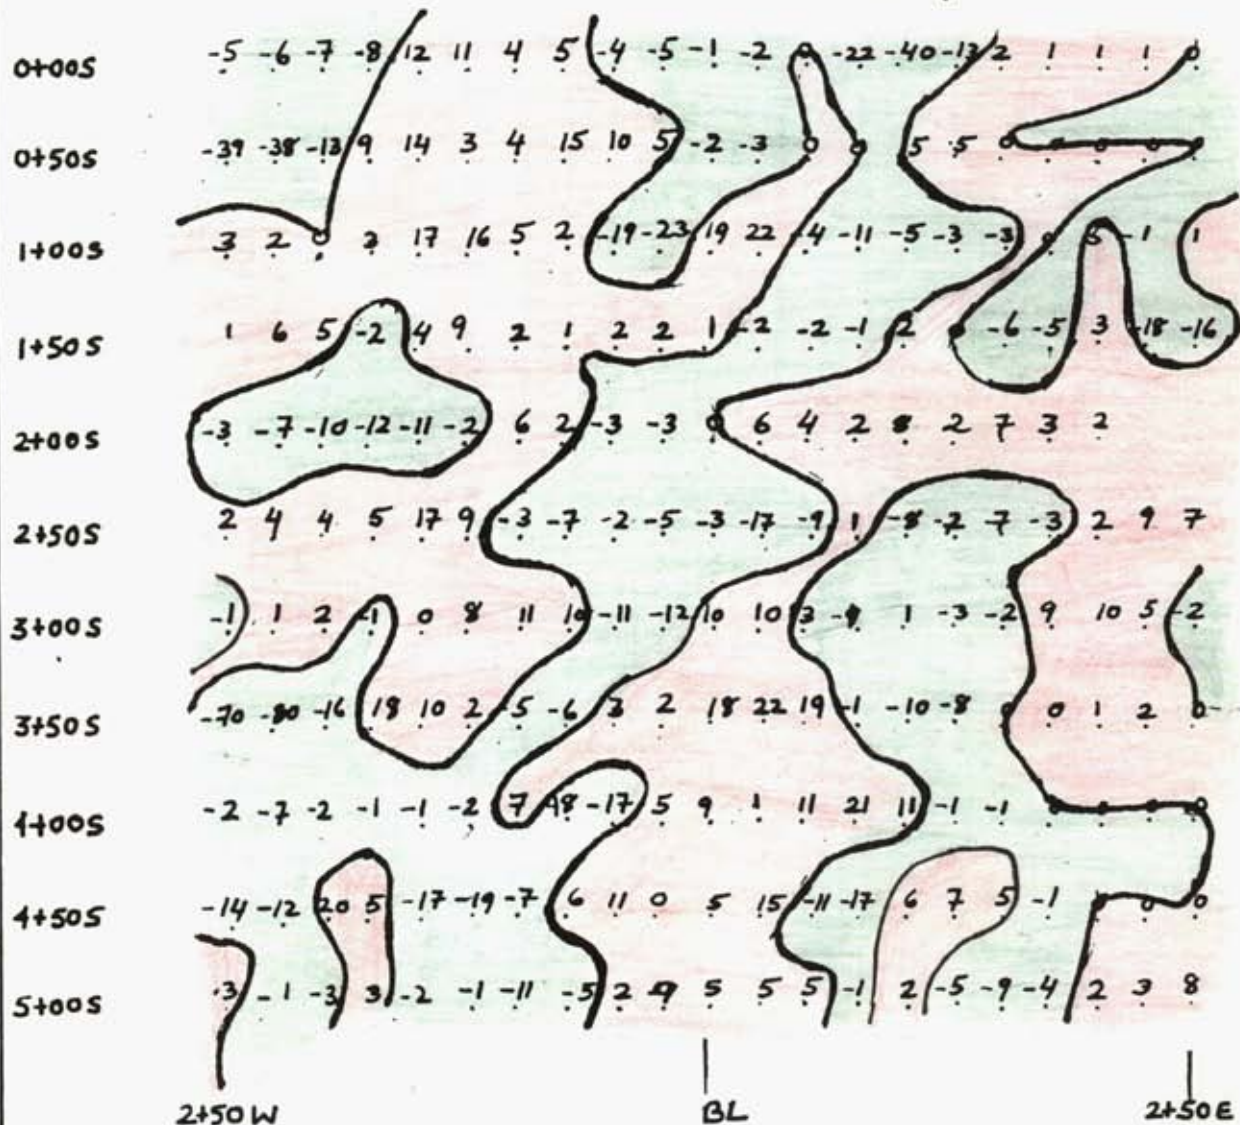 0+00S -5 -6 -7 -8 12 11 4 5 -4 -5 -1 -2 0 -22 -40 -13 2 1 1 1 0
0+50S -39 -38 -13 9 14 3 4 15 10 5 -2 -3 0 0 5 5 0 0 0 0 0
1+00S 3 2 0 3 17 16 5 2 -19 -23 19 22 -4 -11 -5 -3 -3 0 5 -1 1
1+50S 1 6 5 -2 4 9 2 1 2 2 1 -2 -2 -1 2 0 -6 -5 3 -18 -16
2+00S -3 -7 -10 -12 -11 -2 6 2 -3 -3 0 6 4 2 8 2 7 3 2
2+50S 2 4 4 5 17 9 -3 -7 -2 -5 -3 -17 -9 1 -8 -2 -7 -3 2 9 7
3+00S -1 1 2 -1 0 8 11 10 -11 -12 10 10 3 -9 1 -3 -2 9 10 5 -2
3+50S -70 -80 -16 18 10 2 -5 -6 3 2 18 22 19 -1 -10 -8 0 0 1 2 0
4+00S -2 -7 -2 -1 -1 -2 7 -18 -17 5 9 1 11 21 11 -1 -1 0 0 0 0
4+50S -14 -12 20 5 -17 -19 -7 6 11 0 5 15 -11 -17 6 7 5 -1 0 0
5+00S 3 -1 -3 3 -2 -1 -11 -5 2 9 5 5 5 -1 2 -5 -9 -4 2 3 8
2+50W BL 2+50E